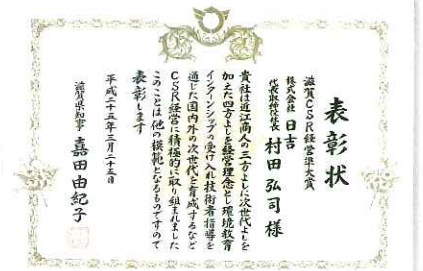 表彰状
滋賀CSR経営準大賞
株式会社 日吉
代表取締役社長 村田弘司 様
貴社は近江商人の三方よしに次世代よしを
加えた四方よしを経営理念とし環境教育
インターンシップの受け入れ技術者指導を
通じた国内外の次世代を育成するなど
CSR経営に積極的に取り組まれました
このことは他の模範となるものですので
表彰します
平成二十五年三月二十五日
滋賀県知事 嘉田由紀子